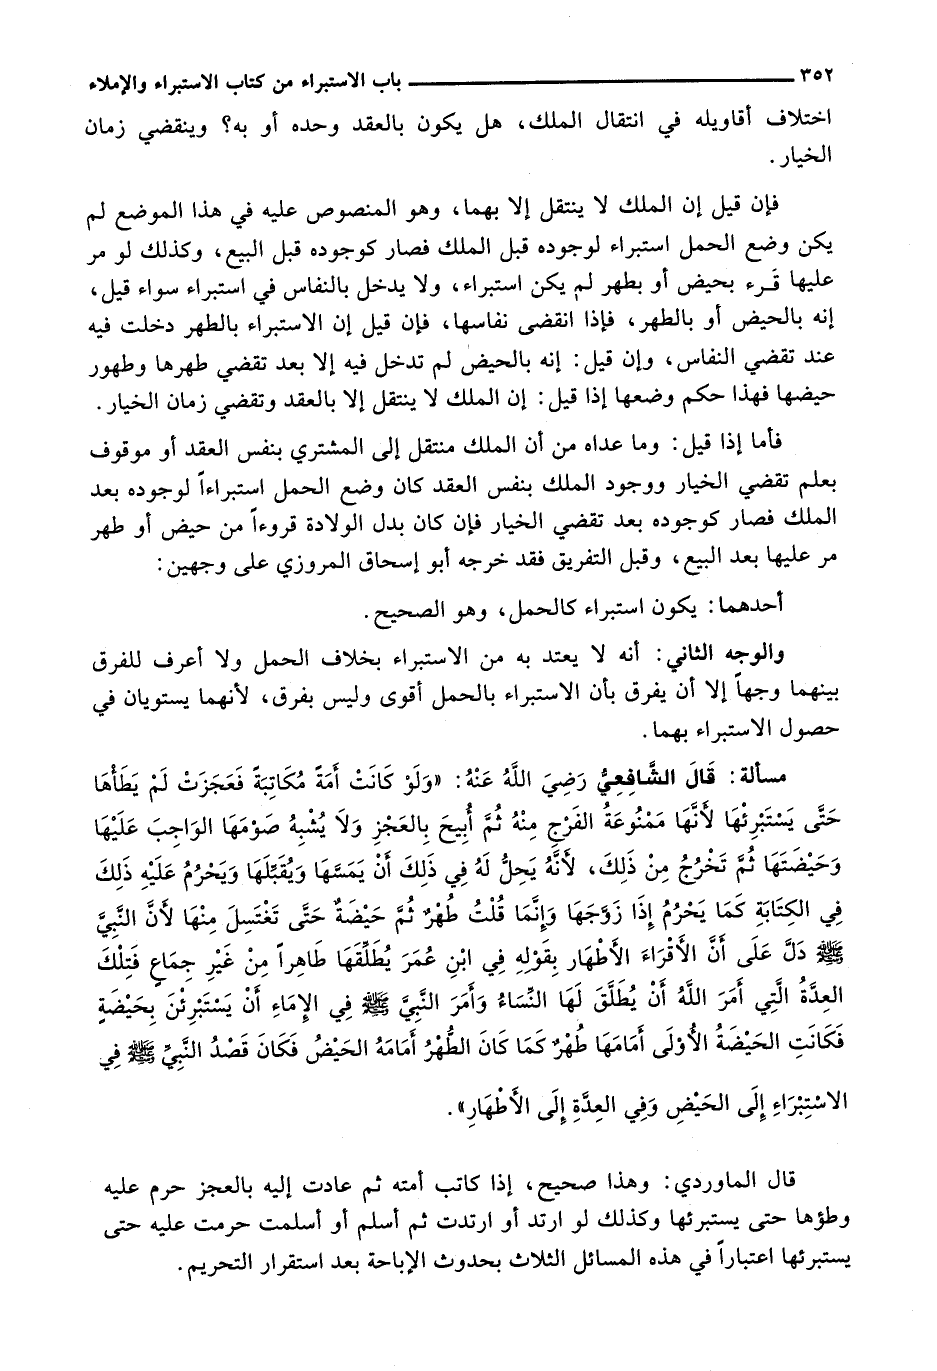 ٣٥٢ ــــــــــــــــ باب الاستبراء من كتاب الاستبراء والإملاء
اختلاف أقاويله في انتقال الملك، هل يكون بالعقد وحده أو به؟ وينقضي زمان
الخيار.
فإن قيل إن الملك لا ينتقل إلا بهما، وهو المنصوص عليه في هذا الموضع لم
يكن وضع الحمل استبراء لوجوده قبل الملك فصار كوجوده قبل البيع، وكذلك لو مر
عليها قَرء بحيض أو بطهر لم يكن استبراء، ولا يدخل بالنفاس في استبراء سواء قيل،
إنه بالحيض أو بالطهر، فإذا انقضى نفاسها، فإن قيل إن الاستبراء بالطهر دخلت فيه
عند تقضي النفاس، وإن قيل: إنه بالحيض لم تدخل فيه إلا بعد تقضي طهرها وطهور
حيضها فهذا حكم وضعها إذا قيل: إن الملك لا ينتقل إلا بالعقد وتقضي زمان الخيار.
فأما إذا قيل: وما عداه من أن الملك منتقل إلى المشتري بنفس العقد أو موقوف
بعلم تقضي الخيار ووجود الملك بنفس العقد كان وضع الحمل استبراءاً لوجوده بعد
الملك فصار كوجوده بعد تقضي الخيار فإن كان بدل الولادة قروءاً من حيض أو طهر
مر عليها بعد البيع، وقبل التفريق فقد خرجه أبو إسحاق المروزي على وجهين:
أحدهما: يكون استبراء كالحمل، وهو الصحيح.
والوجه الثاني: أنه لا يعتد به من الاستبراء بخلاف الحمل ولا أعرف للفرق
بينهما وجهاً إلا أن يفرق بأن الاستبراء بالحمل أقوى وليس بفرق، لأنهما يستويان في
حصول الاستبراء بهما.
مسألة: قَالَ الشَّافِعِيُّ رَضِيَ اللَّهُ عَنْهُ: «وَلَوْ كَانَتْ أَمَةً مُكَاتِبَةً فَعَجَزَتْ لَمْ يَطَأْهَا
حَتَّى يَسْتَبْرِئْهَا لأَنَّهَا مَمْنُوعَةُ الفَرْجِ مِنْهُ ثُمَّ أُبِيحَ بِالعَجْزِ وَلاَ يُشْبِهُ صَوْمَهَا الوَاجِبَ عَلَيْهَا
وَحَيْضَتَهَا ثُمَّ تَخْرُجُ مِنْ ذَلِكَ، لأَنَّهُ يَحِلُّ لَهُ فِي ذَلِكَ أَنْ يَمَسَّهَا وَيُقَبِّلَهَا وَيَحْرُمُ عَلَيْهِ ذَلِكَ
فِي الكِتَابَةِ كَمَا يَحْرُمُ إِذَا زَوَّجَهَا وَإِنَّمَا قُلْتُ طُهْرٌ ثُمَّ حَيْضَةٌ حَتَّى تَغْتَسِلَ مِنْهَا لأَنَّ النَّبِيَّ
ﷺ دَلَّ عَلَى أَنَّ الأَقْرَاءَ الأَطْهَار بِقَوْلِهِ فِي ابْنِ عُمَرَ يُطَلِّقُهَا طَاهِراً مِنْ غَيْرِ جِمَاعٍ فَتِلْكَ
العِدَّةُ الَّتِي أَمَرَ اللَّهُ أَنْ يُطَلَّقَ لَهَا النِّسَاءُ وَأَمَرَ النَّبِيَّ ﷺ فِي الإِمَاءِ أَنْ يَسْتَبْرِئْنَ بِحَيْضَةٍ
فَكَانَتِ الحَيْضَةُ الأُوْلَى أَمَامَهَا طُهْرٌ كَمَا كَانَ الطُّهْرُ أَمَامَهُ الحَيْضُ فَكَانَ قَصْدُ النَّبِيِّ ﷺ فِي
الاسْتِبْرَاءِ إِلَى الحَيْضِ وَفِي العِدَّةِ إِلَى الأَطْهَارِ».
قال الماوردي: وهذا صحيح، إذا كاتب أمته ثم عادت إليه بالعجز حرم عليه
وطؤها حتى يستبرئها وكذلك لو ارتد أو ارتدت ثم أسلم أو أسلمت حرمت عليه حتى
يستبرئها اعتباراً في هذه المسائل الثلاث بحدوث الإباحة بعد استقرار التحريم.